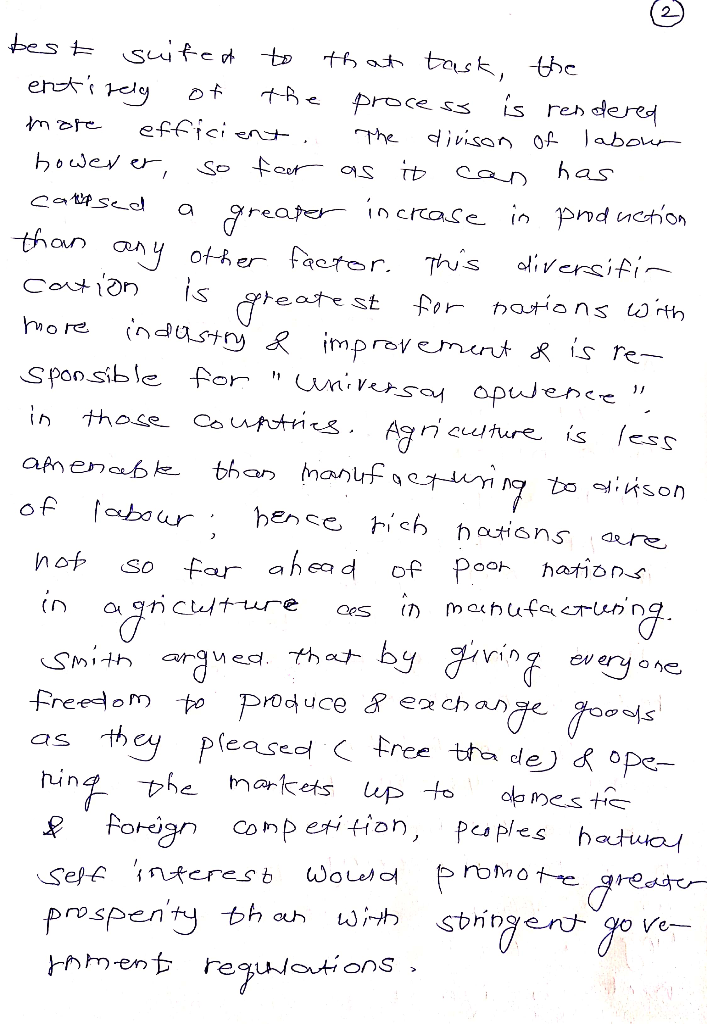 2
best suited to that task, the
entirely of the process is rendered
more efficient. The divison of labour
however, so far as it can has
caused a greater increase in production
than any other factor. This diversifi-
cation is greatest for nations with
more industry & improvement & is re-
sponsible for "universal opulence"
in those countries. Agriculture is less
amenable than manufacturing to divison
of labour; hence rich nations are
not so far ahead of poor nations
in agriculture as in manufacturing.
Smith argued. that by giving everyone
freedom to produce & exchange goods
as they pleased (free trade) & ope-
ning the markets up to domestic
& foreign competition, peoples natural
self interest would promote greater
prosperity than with stringent gove-
rnment regulations.